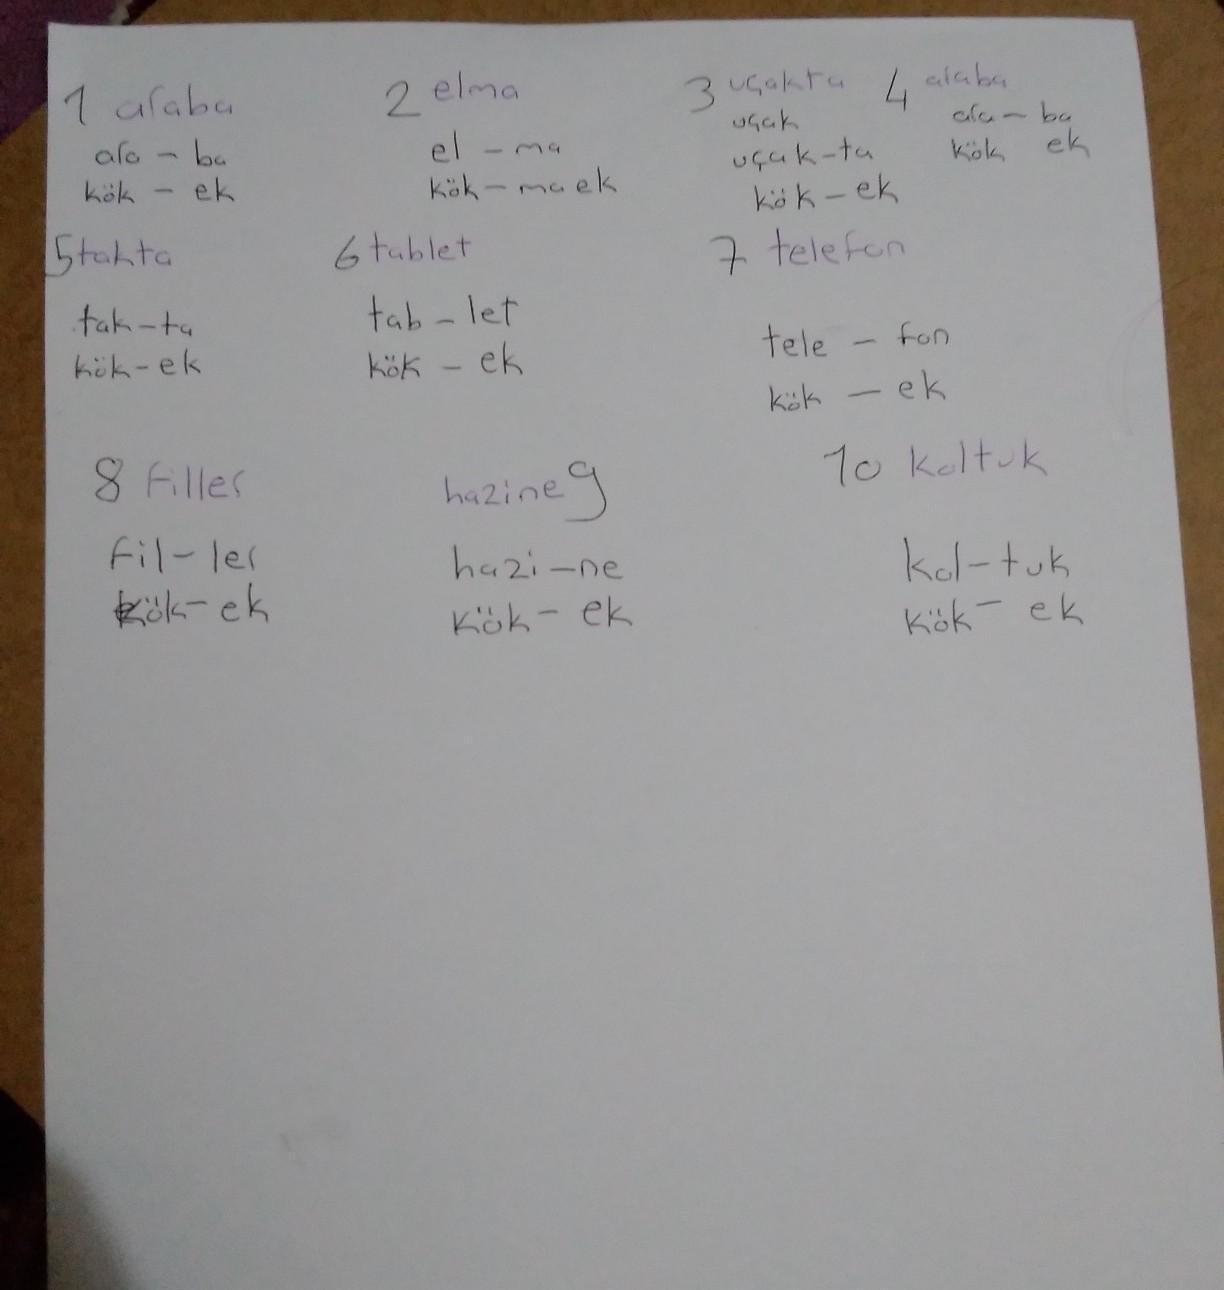 1 araba
ara - ba
kök - ek
2 elma
el - ma
kök - ma ek
3 uçakta
uçak
uçak-ta
kök - ek
4 araba
ara - ba
kök ek
5 tahta
tak-ta
kök-ek
6 tablet
tab - let
kök - ek
7 telefon
tele - fon
kök - ek
8 filler
fil-ler
kök-ek
hazine 9
hazi-ne
kök - ek
10 koltuk
kol-tuk
kök - ek